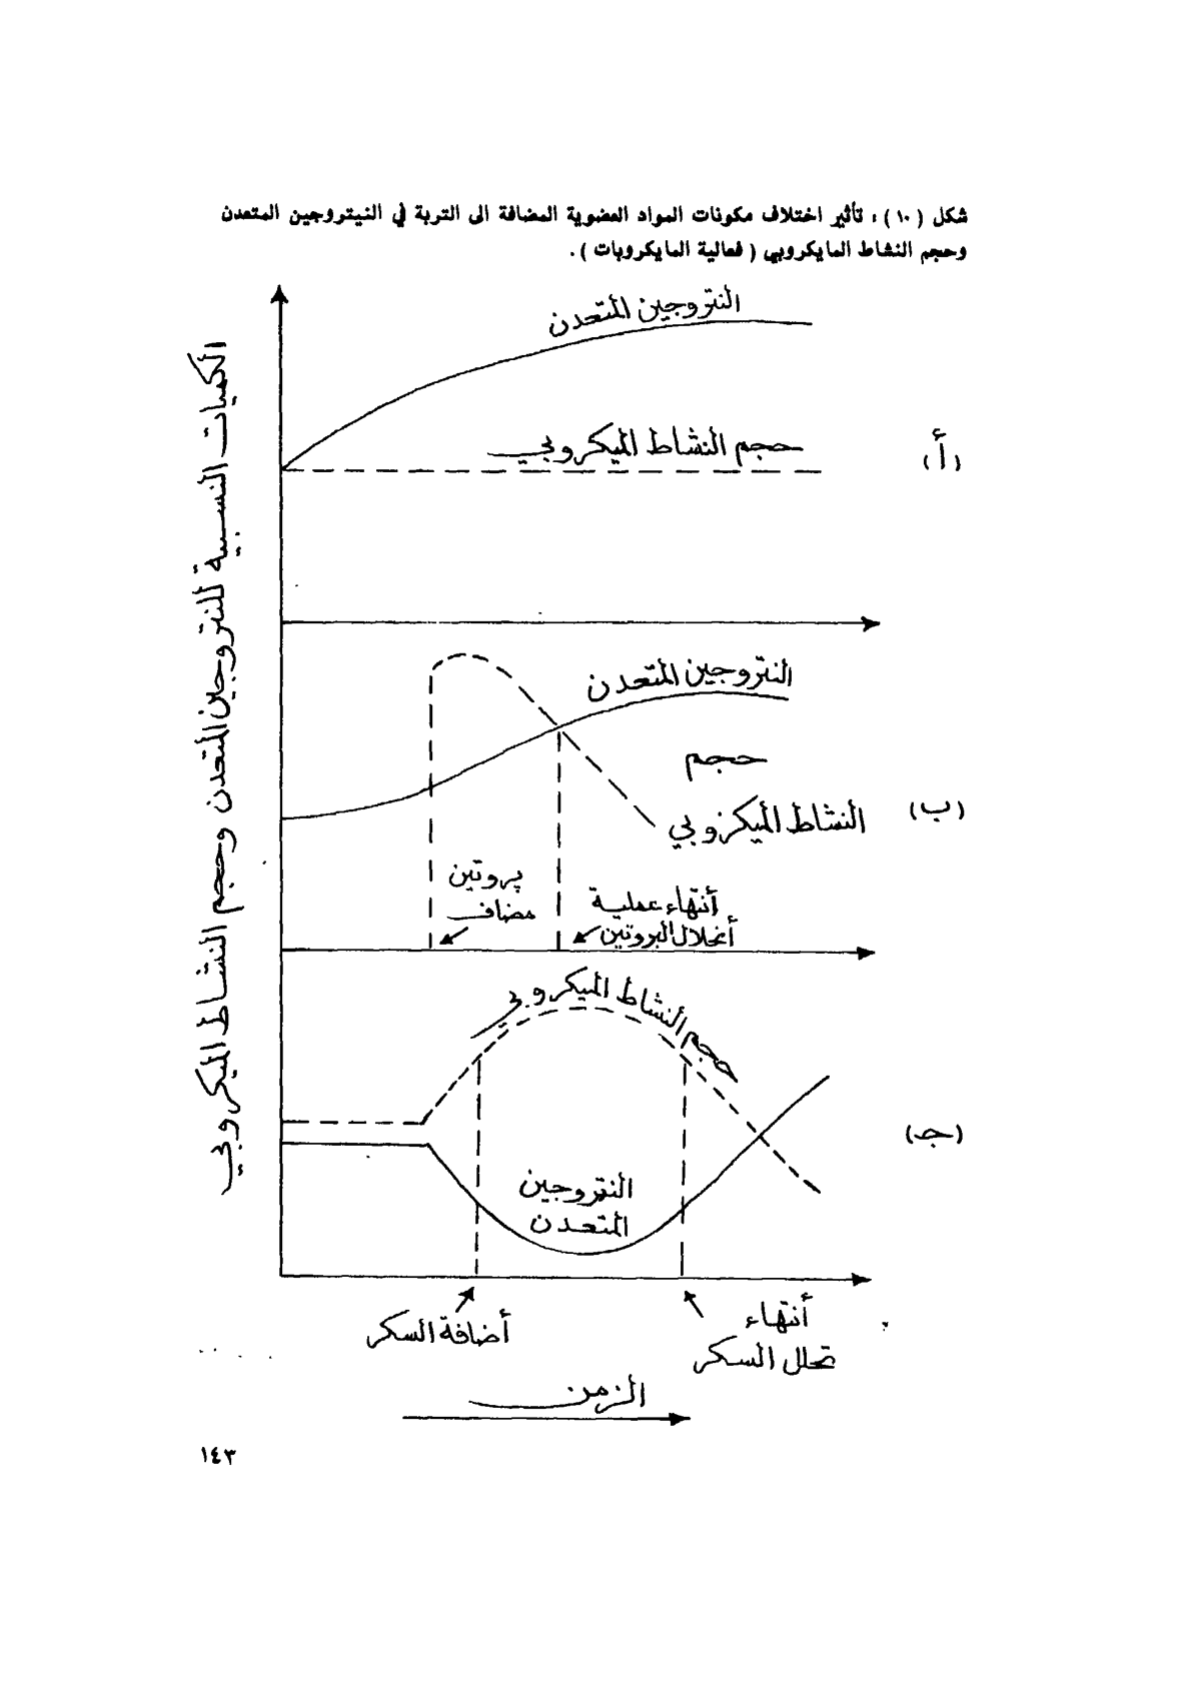 شكل ( ١٠ ) : تأثير اختلاف مكونات المواد العضوية المضافة الى التربة في النيتروجين المتعدن
وحجم النشاط المايكروبي ( فعالية المايكروبات ) .
الكميات النسبية للنتروجين المتعدن وحجم النشاط الميكروبي
النتروجين المتعدن
حجم النشاط الميكروبي
(أ)
النتروجين المتعدن
حجم
النشاط الميكروبي
(ب)
پروتين
مضاف
أنتهاء عملية
أنحلال البروتين
حجم النشاط الميكروبي
(جـ)
النتروجين
المتعدن
أضافة السكر
أنتهاء
تحلل السكر
الزمن
١٤٣